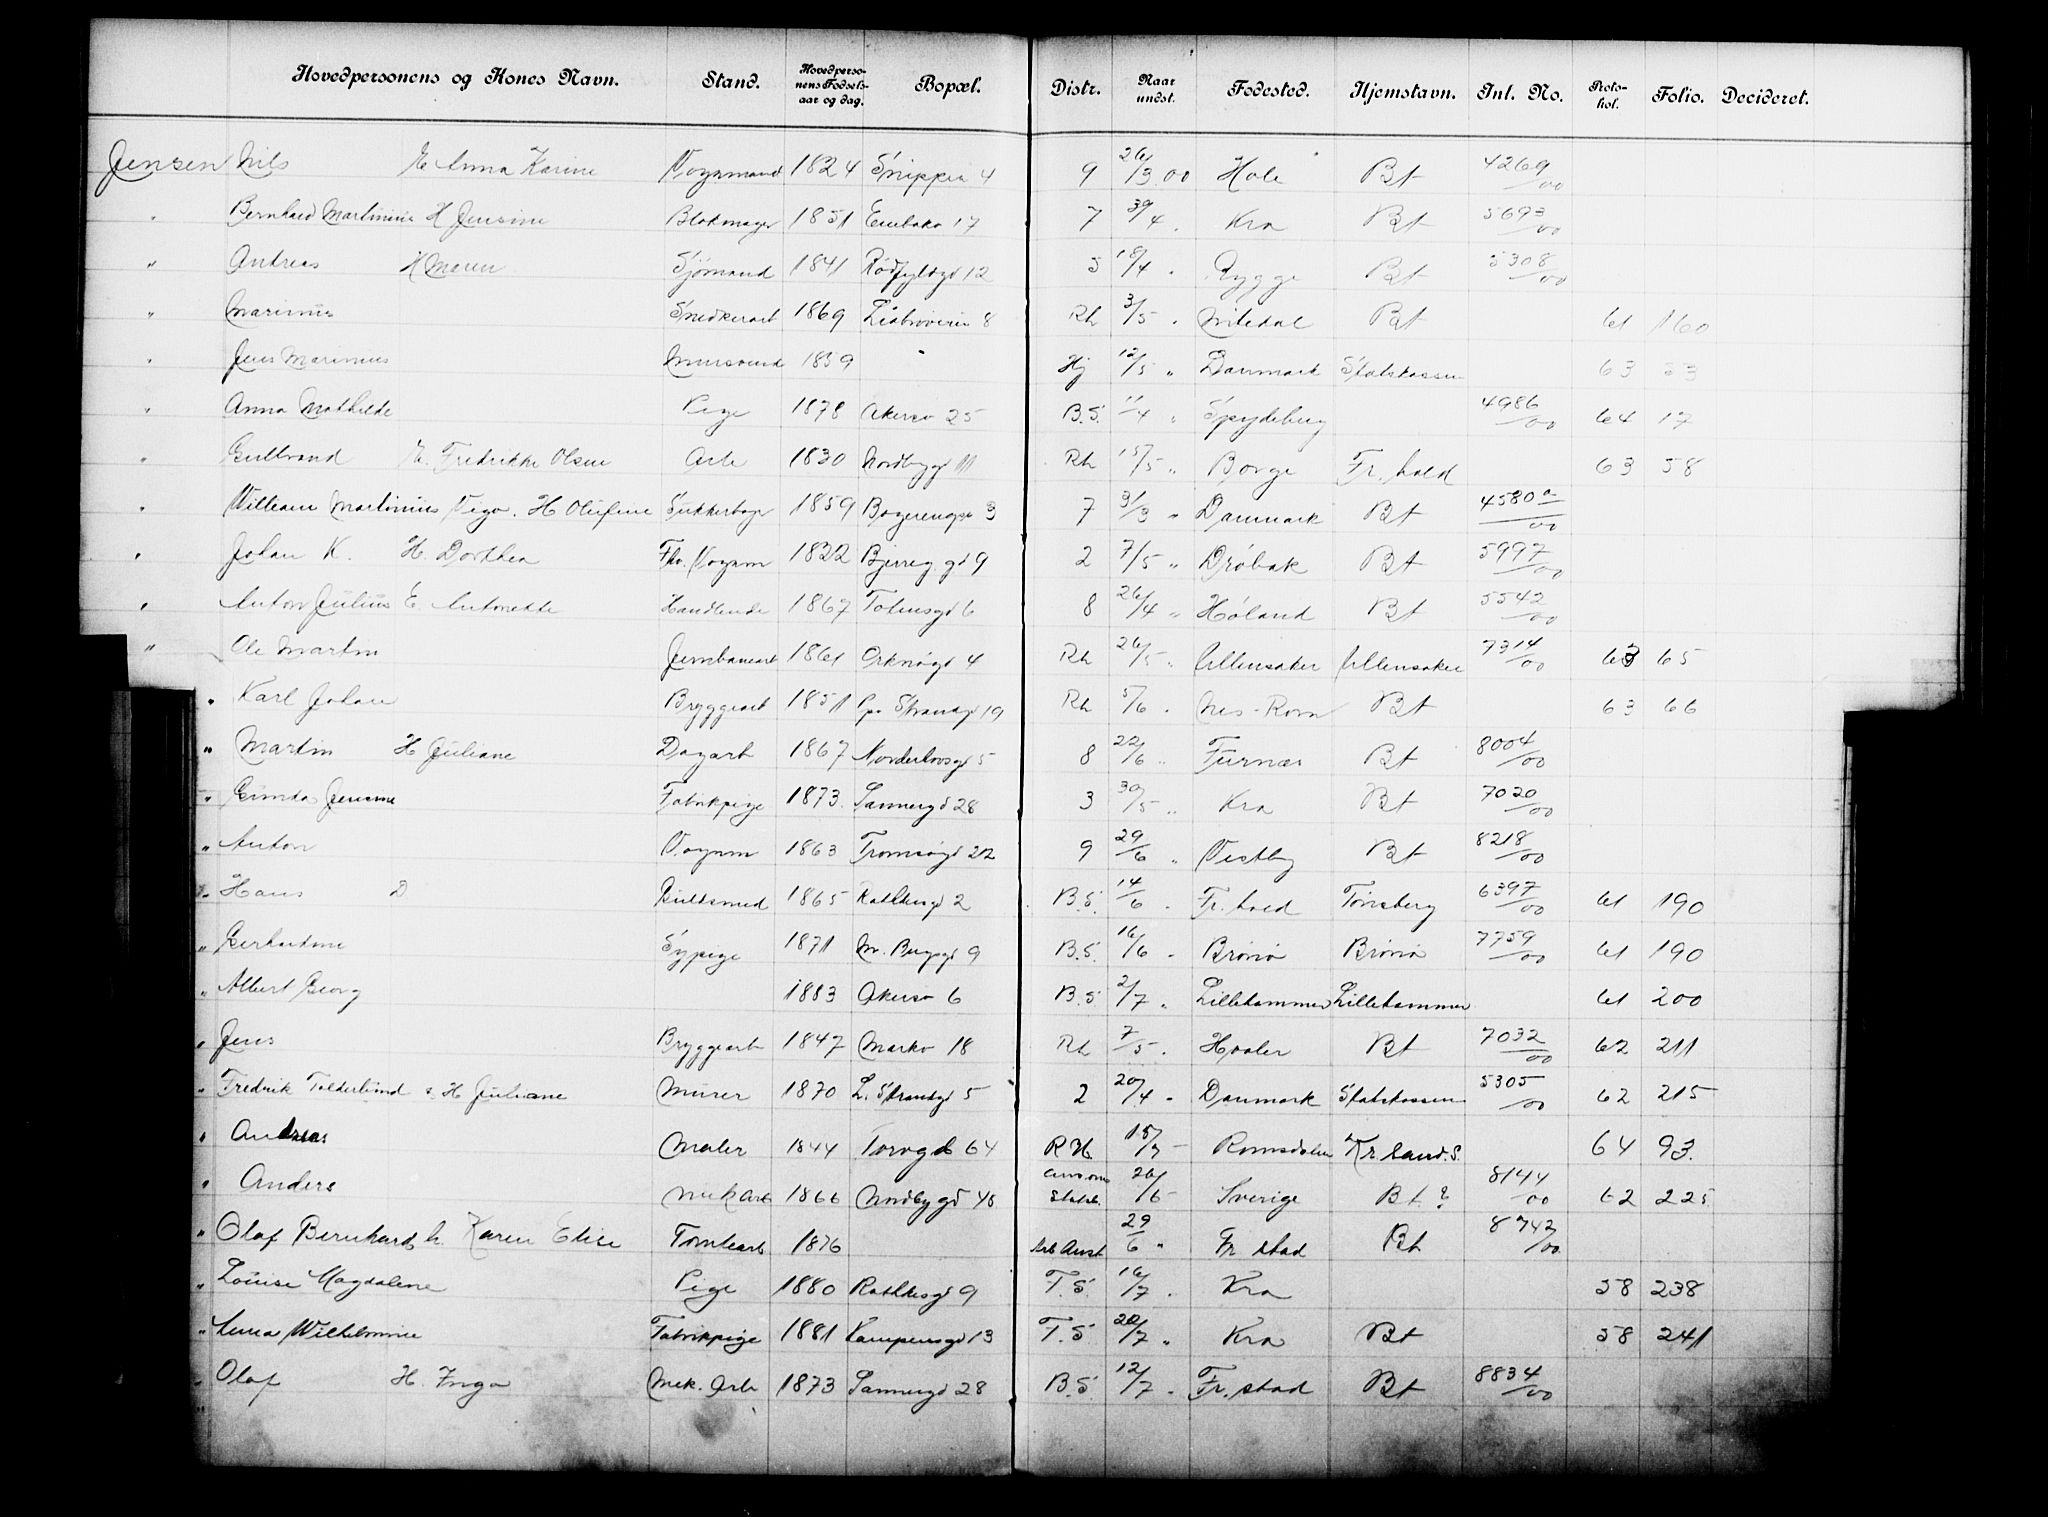 Hovedpersonens og Kones Navn. Stand. Hovedperso-nens Fødsels-aar og dag. Bopæl. Distr. Naar undst. Fødested. Hjemstavn. Int. No. Proto-kol. Folio. Decideret.
Jensen Nils E Anna Karine Vognmand 1824 Snippen 4 9 26/3 00 Hole Bt 4269/00
" Bernhard Martinius H Jensine Blokmager 1851 17 7 Kra Bt 5693/00
" Andreas H Maren Sjömand 1841 Rødfyldgd 12 5 18/4 " Rygge Bt 5308/00
" Marinius Snedkerarb 1869 8 Rh 3/5 " Nitedal Bt 61 160
" Jens Marinius Mursvend 1859 " Hj 12/5 " Danmark Statskassen 63 53
" Anna Mathilde Pige 1878 Akersv 25 B.S. 11/4 " Spydeberg 4986/00 64 17
" Gulbrand E. Fredrikke Olsen Arb 1830 Nordbygd 11 Rh 15/5 " Borge Fr.hald 63 58
" William Martinius Vigo. H Olufine Sukkerbager 1859 3 7 31/3 " Danmark Bt 4580 a/00
" Johan K. H. Dorthea Fhv. Vognm 1822 Bjerreg.gd 9 2 7/5 " Drøbak Bt 5997/00
" Anton Julius E. Antonette Handlende 1867 Totensgd 6 8 26/4 " Høland Bt 5542/00
" Ole Martin Jernbanearb 1861 Orknøgd 4 Rh 26/5 " Ullensaker Ullensaker 7314/00 63 65
" Karl Johan Bryggearb 1851 Strandgd 19 Rh 5/6 " Nes-Rom Bt 63 66
" Martin H Juliane Dagarb 1867 Norderhovsgd 5 8 22/6 " Furnæs Bt 8004/00
" Gunda Jensine Fabrikpige 1873. Sannergd 28 3 30/5 " Kra Bt 7020/00
" Anton Vognm 1863 Tromsøgd 22 9 29/6 " Vestby Bt 8218/00
" Hans D Guldsmed 1865 Rathkesgd 2 B.S. 14/6 " Fr.hald Tønsberg 6397/00 61 190
" Gerhardine Sypige 1871 M. Bergsgd 9 B.S. 16/6 " Brønø Brønø 7759/00 61 190
" Albert Georg 1883 Akersv 6 B.S 2/7 " Lillehammer Lillehammer 61 200
" Jens Bryggearb 1847 Markv 18 Rh 7/5 " Hvaler Bt 7032/00 62 211
" Fredrik Tolderlund H Juliane Murer 1870 L. Strandgd 5 2 20/4 " Danmark Statskassen 5305/00 62 215
" Andreas Maler 1844 Torvgd 64 R H. 15/7 Romsdalen Kr.sand.S. 64 93.
" Anders Mek Arb 1866 Nordbygd 48 26/6 Sverige Bt? 8144/00 62 225
" Olaf Bernhard h. Karen Elise Tomtearb 1876 Arb Anst 29/6 " Fr stad Bt 8742/00
" Louise Magdalene Pige 1880 Rathkesgd 9 T.S. 16/7 " Kra 58 238
" Anna Wilhelmine Fabrikpige 1881 Kampensgd 13 T.S 20/7 " Kra Bt 58 241
" Olaf H. Inga Mek. Arb 1873 Sannergd 28 B.S. 12/7 " Fr.stad Bt 8834/00
"